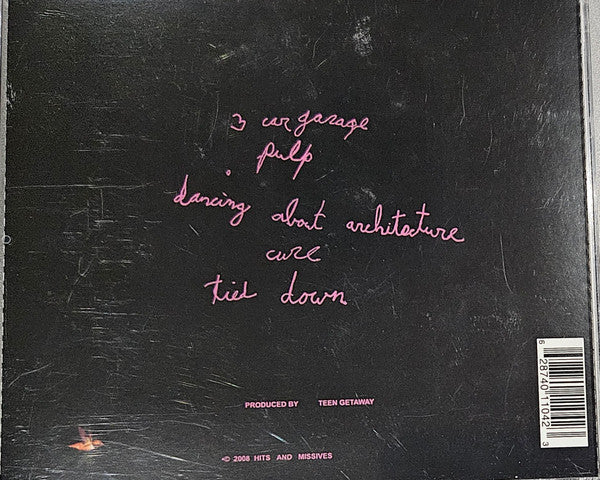 3 car garage
pulp
dancing about architecture
cure
tied down
PRODUCED BY TEEN GETAWAY
© 2008 HITS AND MISSIVES
6 28740 11042 3